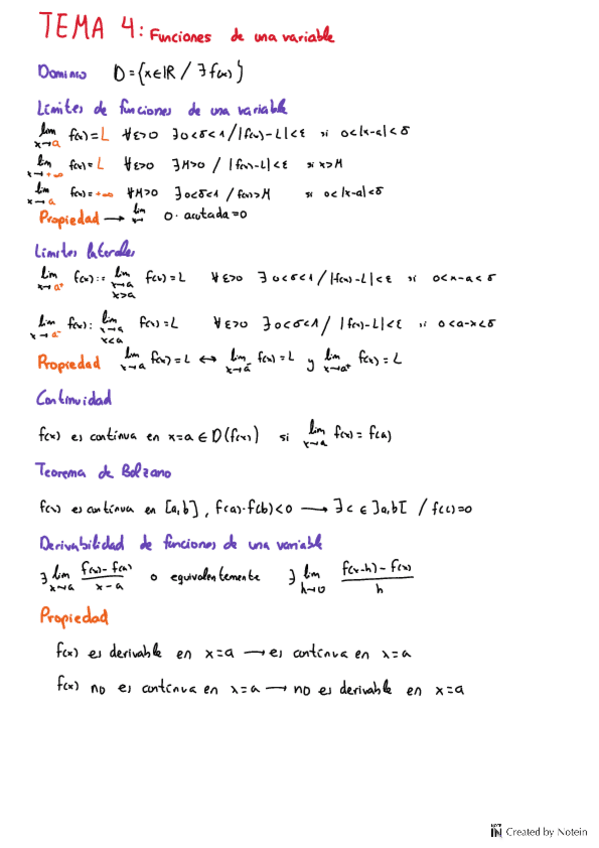 TEMA 4: Funciones de una variable
Dominio D={x∈IR / ∃ f(x)}
Límites de funciones de una variable
lim x→a f(x)=L ∀ε>0 ∃ 0<δ<1 / |f(x)-L|<ε si 0<|x-a|<δ
lim x→+∞ f(x)=L ∀ε>0 ∃M>0 / |f(x)-L|<ε si x>M
lim x→a f(x)=+∞ ∀M>0 ∃ 0<δ<1 / f(x)>M si 0<|x-a|<δ
Propiedad → lim 0· acotada=0
Límites laterales
lim x→a⁺ f(x):= lim x→a x>a f(x)=L ∀ε>0 ∃ 0<δ<1 / |f(x)-L|<ε si 0<x-a<δ
lim x→a⁻ f(x): lim x→a x<a f(x)=L ∀ε>0 ∃ 0<δ<1 / |f(x)-L|<ε si 0<a-x<δ
Propiedad lim x→a f(x)=L ↔ lim x→a⁻ f(x)=L y lim x→a⁺ f(x)=L
Continuidad
f(x) es continua en x=a ∈ D(f(x)) si lim x→a f(x)=f(a)
Teorema de Bolzano
f(x) es continua en [a,b], f(a)·f(b)<0 → ∃ c ∈ ]a,b[ / f(c)=0
Derivabilidad de funciones de una variable
∃ lim x→a (f(x)-f(a))/(x-a) o equivalentemente ∃ lim h→0 (f(x-h)-f(x))/h
Propiedad
f(x) es derivable en x=a → es continua en x=a
f(x) no es continua en x=a → no es derivable en x=a
NOTE IN Created by Notein